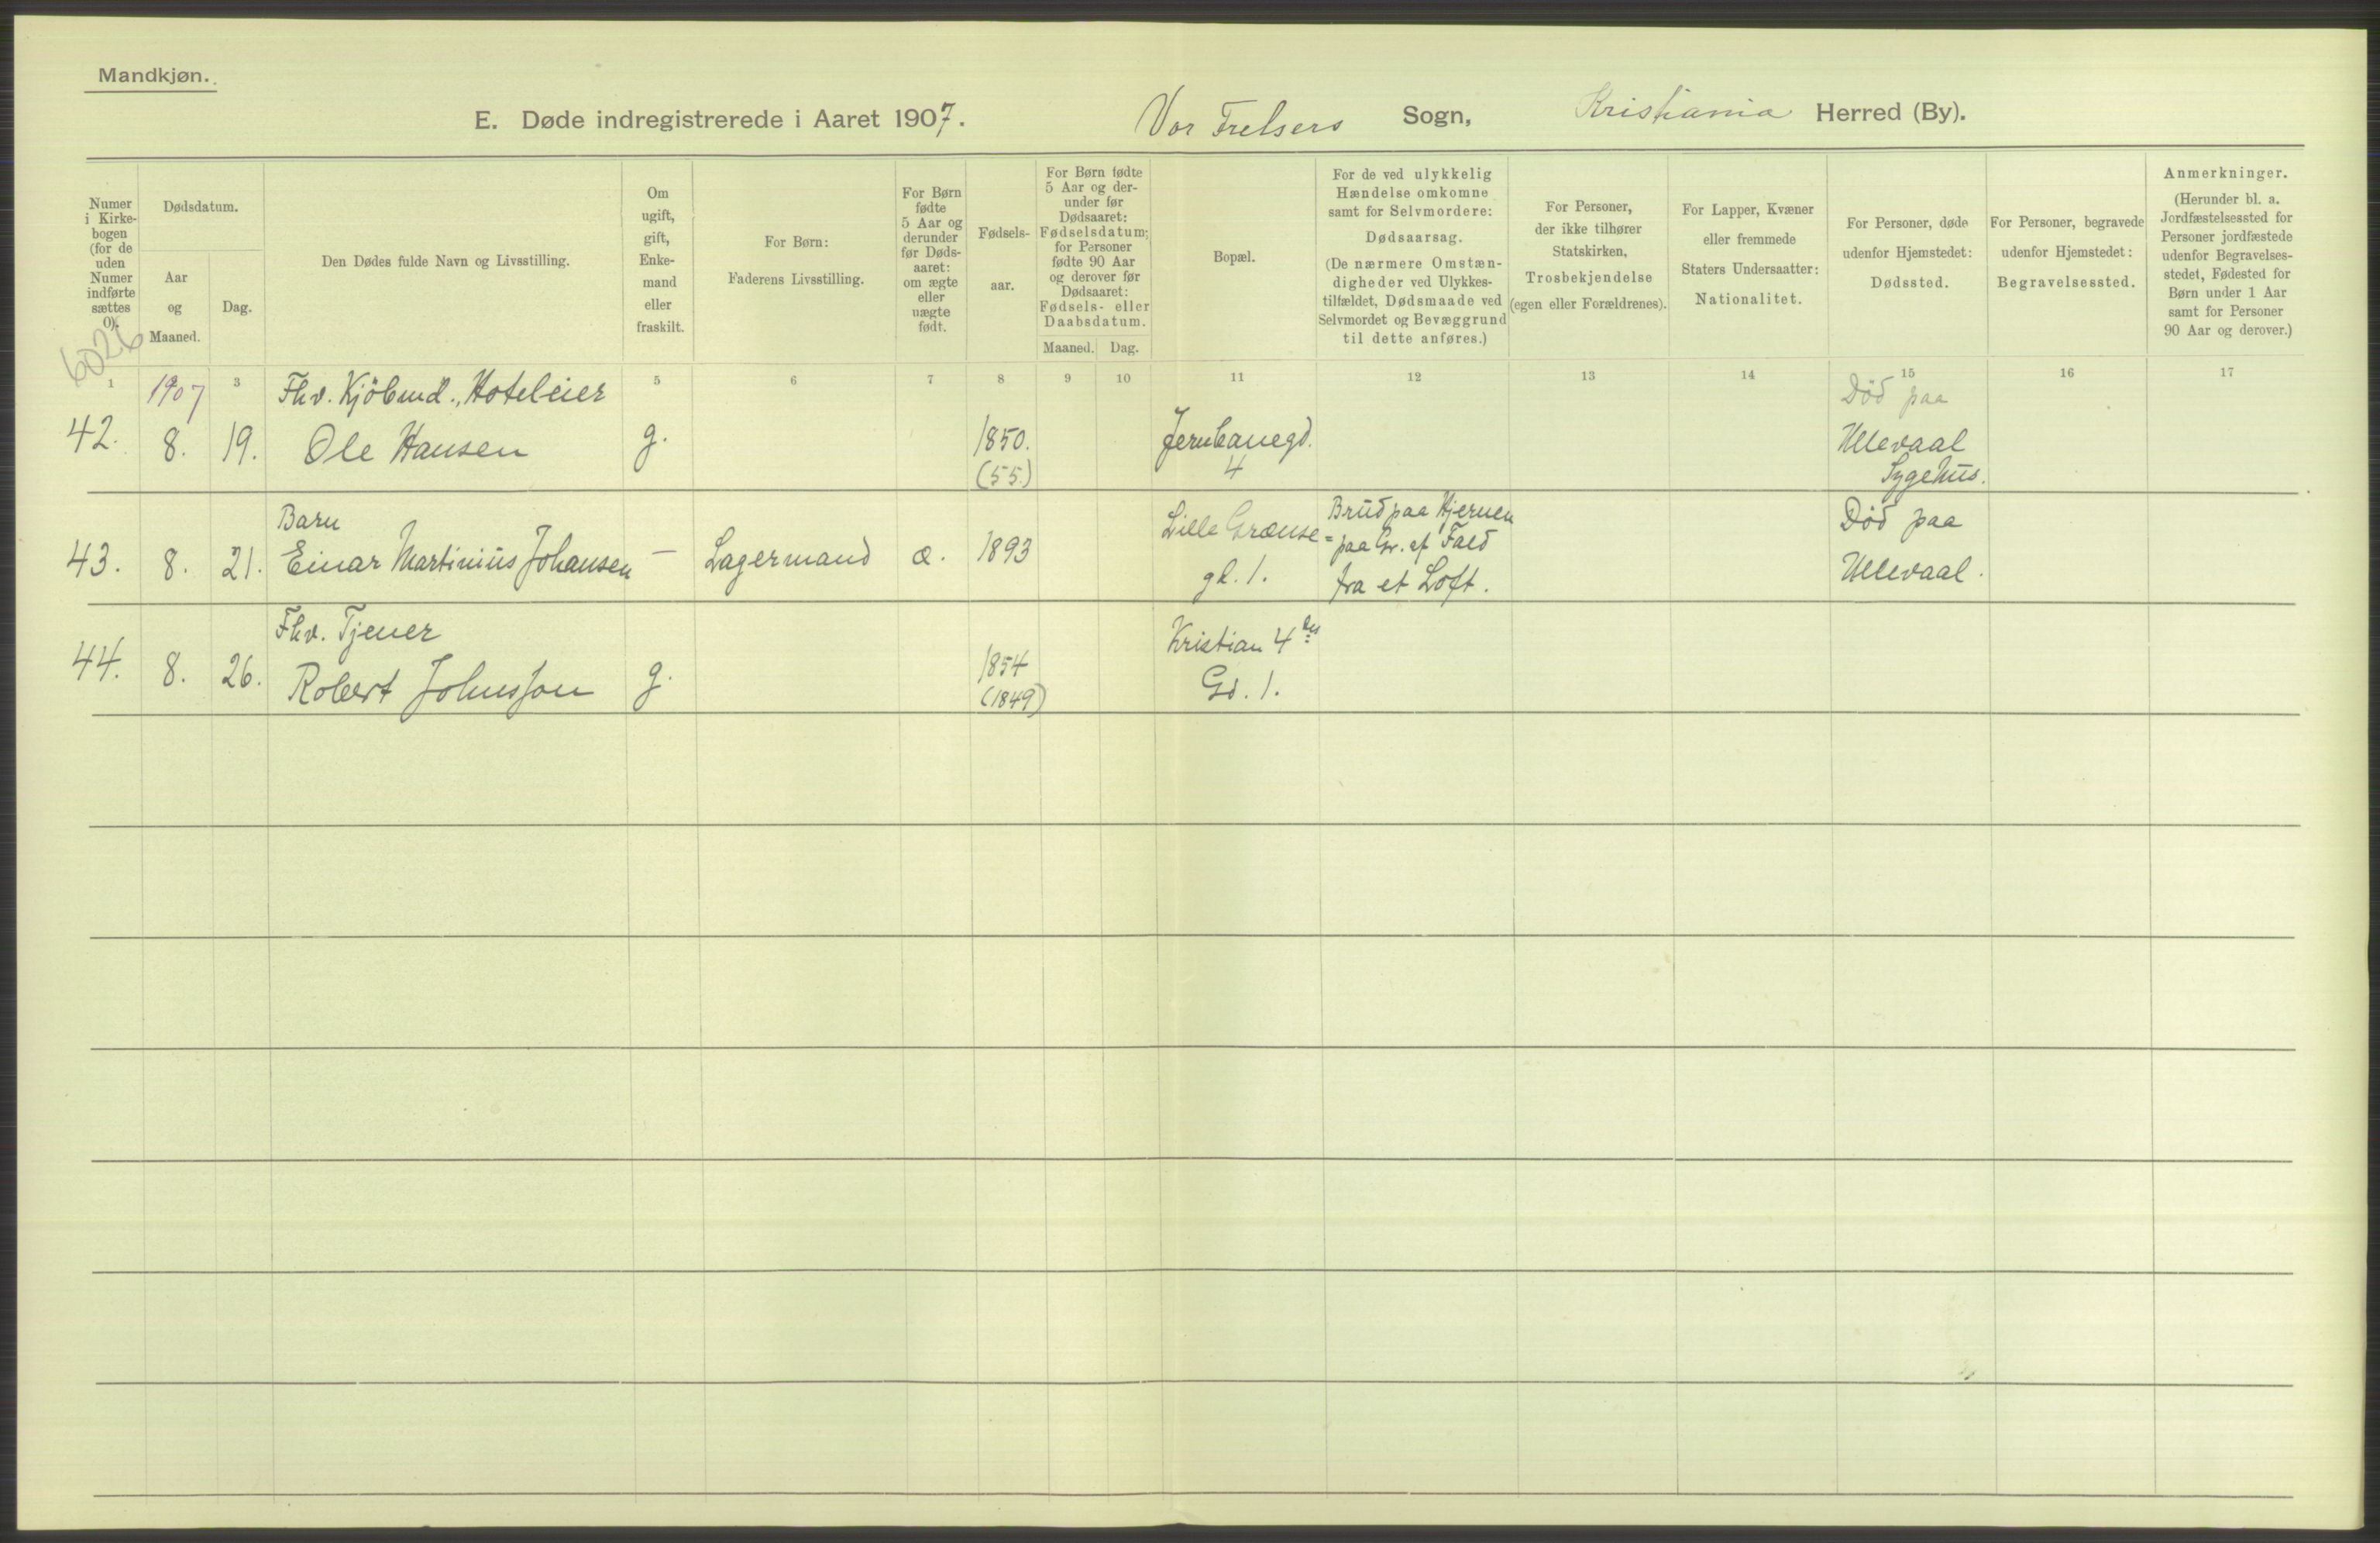 Mandkjøn.
E. Døde indregistrerede i Aaret 1907. Vor Frelsers Sogn, Kristiania Herred (By).
Numer
i Kirke-
bogen
(for de
uden
Numer
indførte
sættes
0).
Dødsdatum.
Aar
og
Maaned.
Dag.
Den Dødes fulde Navn og Livsstilling.
Om
ugift,
gift,
Enke-
mand
eller
fraskilt.
For Børn:
Faderens Livsstilling.
For Børn
fødte
5 Aar og
derunder
før Døds-
aaret:
om ægte
eller
uægte
født.
Fødsels-
aar.
For Børn fødte
5 Aar og der-
under før
Dødsaaret:
Fødselsdatum;
for Personer
fødte 90 Aar
og derover før
Dødsaaret:
Fødsels- eller
Daabsdatum.
Maaned. Dag.
Bopæl.
For de ved ulykkelig
Hændelse omkomne
samt for Selvmordere:
Dødsaarsag.
(De nærmere Omstæn-
digheder ved Ulykkes-
tilfældet, Dødsmaade ved
Selvmordet og Bevæggrund
til dette anføres.)
For Personer,
der ikke tilhører
Statskirken,
Trosbekjendelse
(egen eller Forældrenes).
For Lapper, Kvæner
eller fremmede
Staters Undersaatter:
Nationalitet.
For Personer, døde
udenfor Hjemstedet:
Dødssted.
For Personer, begravede
udenfor Hjemstedet:
Begravelsessted.
Anmerkninger.
(Herunder bl. a.
Jordfæstelsessted for
Personer jordfæstede
udenfor Begravelses-
stedet, Fødested for
Børn under 1 Aar
samt for Personer
90 Aar og derover.)
6026
1 3 5 6 7 8 9 10 11 12 13 14 15 16 17
1907 Fhv. Kjöbmd., Hoteleier Död paa
42. 8. 19. Ole Hansen g. 1850. Jernbanegd. Ullevaal
(55) 4 Sygehus.
Barn Lille Grænse= Brud paa Hjernen Död paa
43. 8. 21. Einar Martinius Johansen — Lagermand æ. 1893 paa Gr. af Fald
gd. 1. fra et Loft. Ullevaal.
Fhv. Tjener Kristian 4des
44. 8. 26. Robert Johnsson g. 1854 Gd. 1.
(1849)